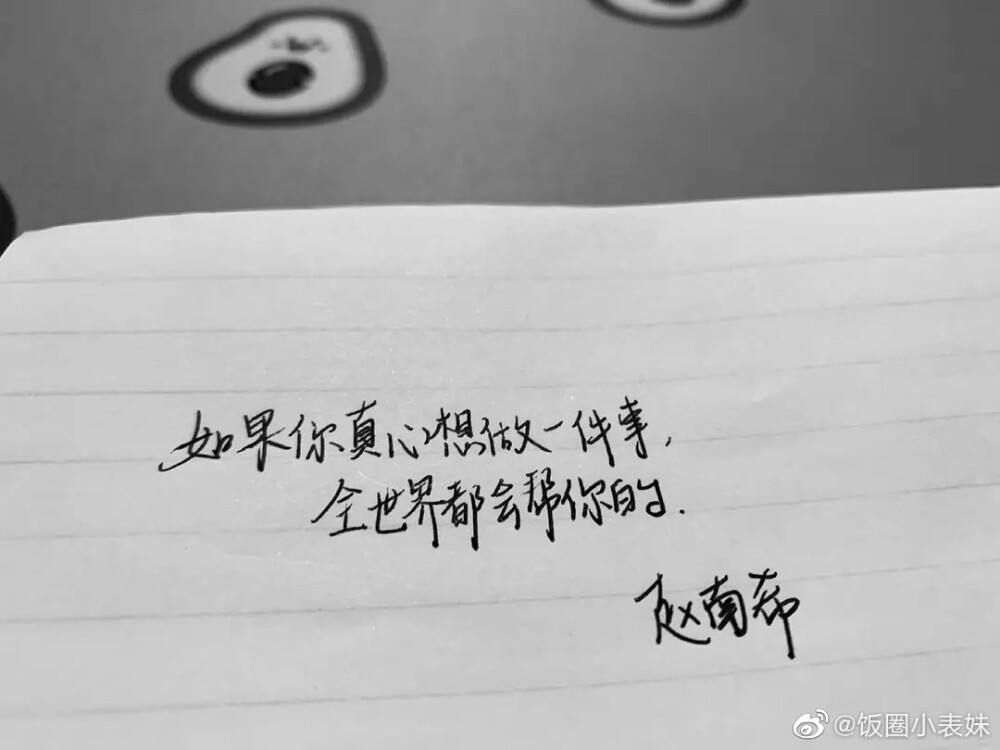 如果你真心想做一件事,
全世界都会帮你的.
赵南希
@饭圈小表妹